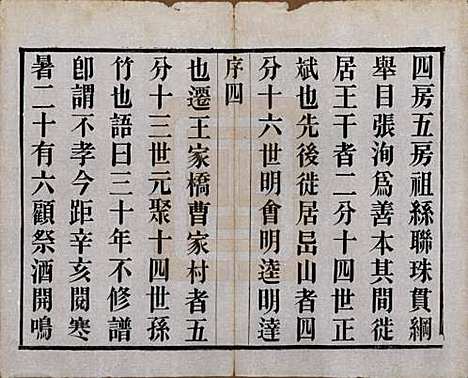 四房五房祖絲聯珠貫綱
舉目張洵爲善本其間徙
居王干者二分十四世正
斌也先後徙居昌山者四
分十六世明會明逵明達
序四
也遷王家橋曹家村者五
分十三世元聚十四世孫
竹也語曰三十年不修譜
卽謂不孝今距辛亥閱寒
暑二十有六顧祭酒開鳴